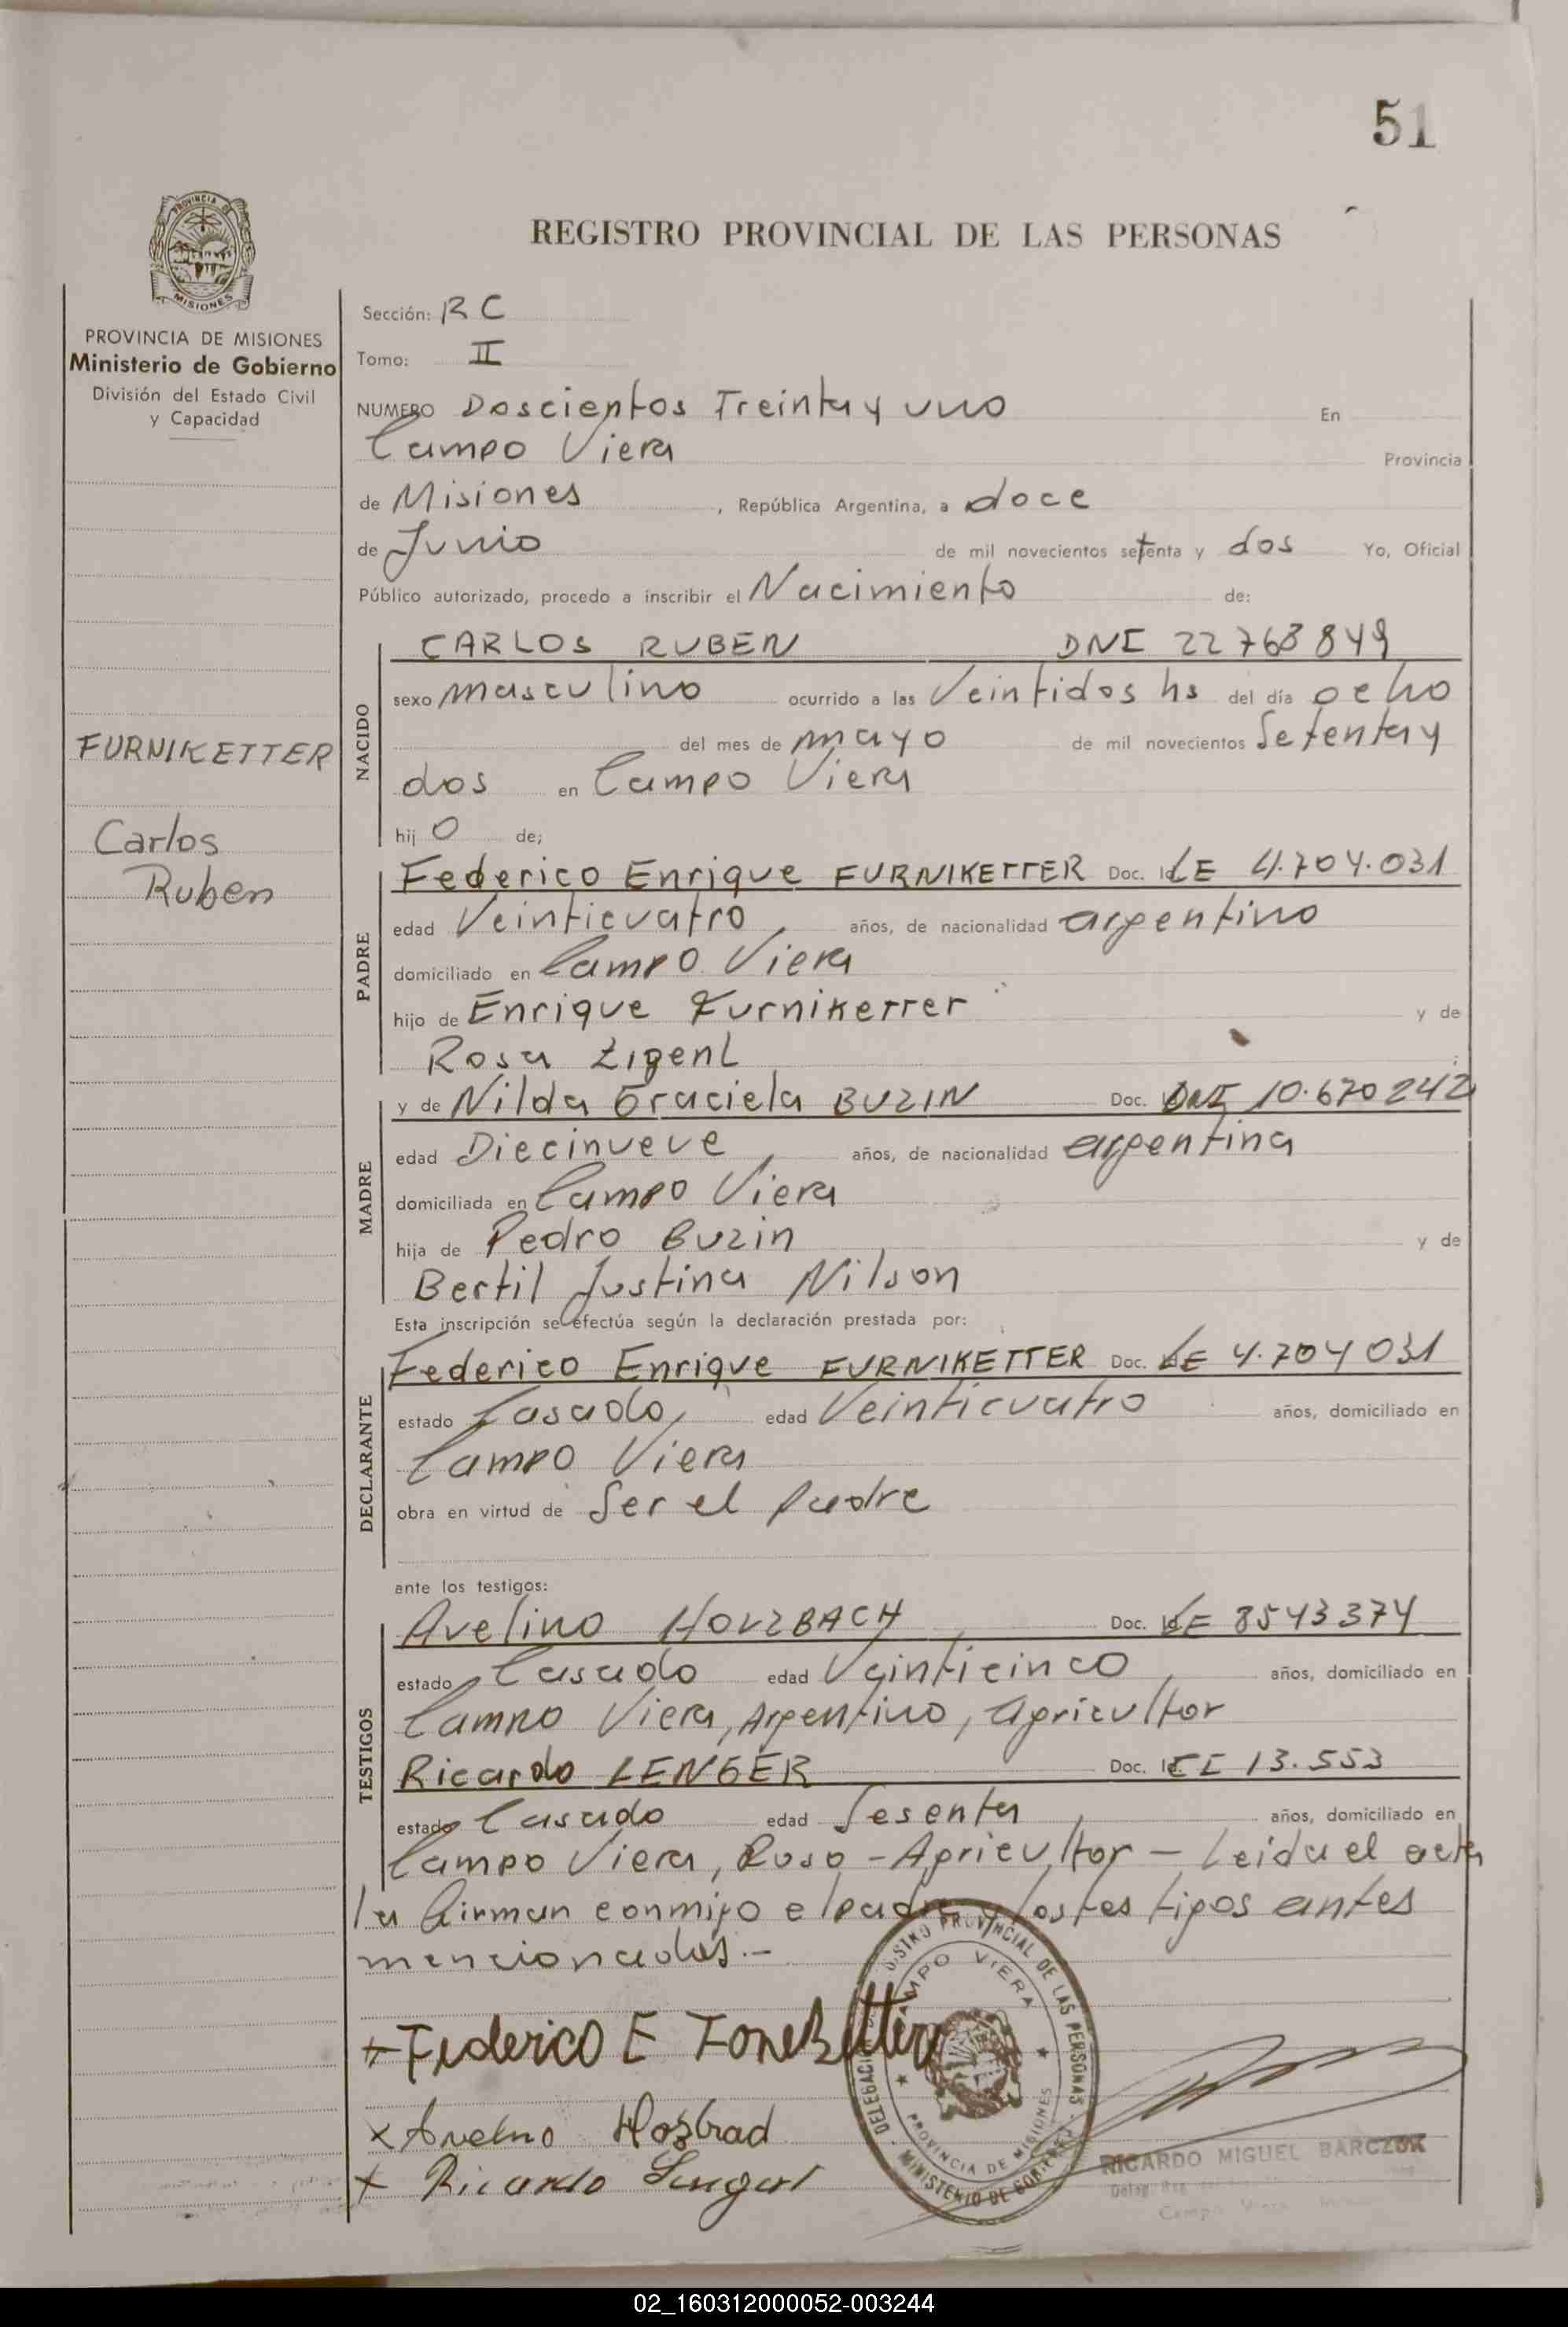 51
REGISTRO PROVINCIAL DE LAS PERSONAS
PROVINCIA DE MISIONES
Ministerio de Gobierno
División del Estado Civil
y Capacidad
FURNIKETTER
Carlos
Ruben
Sección: RC
Tomo: II
NUMERO Doscientos Treinta y uno En
Campo Viera Provincia
de Misiones, República Argentina, a doce
de Junio de mil novecientos setenta y dos Yo, Oficial
Público autorizado, procedo a inscribir el Nacimiento de:
NACIDO
CARLOS RUBEN DNI 22 768 849
sexo masculino ocurrido a las Veintidos hs del día ocho
del mes de mayo de mil novecientos Setenta y
dos en Campo Viera
hij o de;
PADRE
Federico Enrique FURNIKETTER Doc. LE 4.704.031
edad Veinticuatro años, de nacionalidad argentino
domiciliado en Campo Viera
hijo de Enrique Furniketter y de
Rosa Zigenl
MADRE
y de Nilda Graciela BUZIN Doc. DNI 10.670 242
edad Diecinueve años, de nacionalidad argentina
domiciliada en Campo Viera
hija de Pedro Buzin y de
Bertil Justina Nilson
Esta inscripción se efectúa según la declaración prestada por:
DECLARANTE
Federico Enrique FURNIKETTER Doc. LE 4.704 031
estado Casado, edad Veinticuatro años, domiciliado en
Campo Viera
obra en virtud de Ser el padre
ante los testigos:
TESTIGOS
Avelino HOLZBACH Doc. LE 8543374
estado Casado edad Veinticinco, años, domiciliado en
Campo Viera, Argentino, agricultor
Ricardo LENGER Doc. CI 13.553
estado Casado edad Sesenta, años, domiciliado en
Campo Viera, Ruso - Agricultor - Leida el acta
la firman conmigo el padre y los testigos antes
mencionados.-
+ Federico E
x Avelino
+ Ricardo
REGISTRO PROVINCIAL DE LAS PERSONAS
CAMPO VIERA
PROVINCIA DE MISIONES
MINISTERIO DE GOBIERNO
RICARDO MIGUEL BARCZUK
02_160312000052-003244